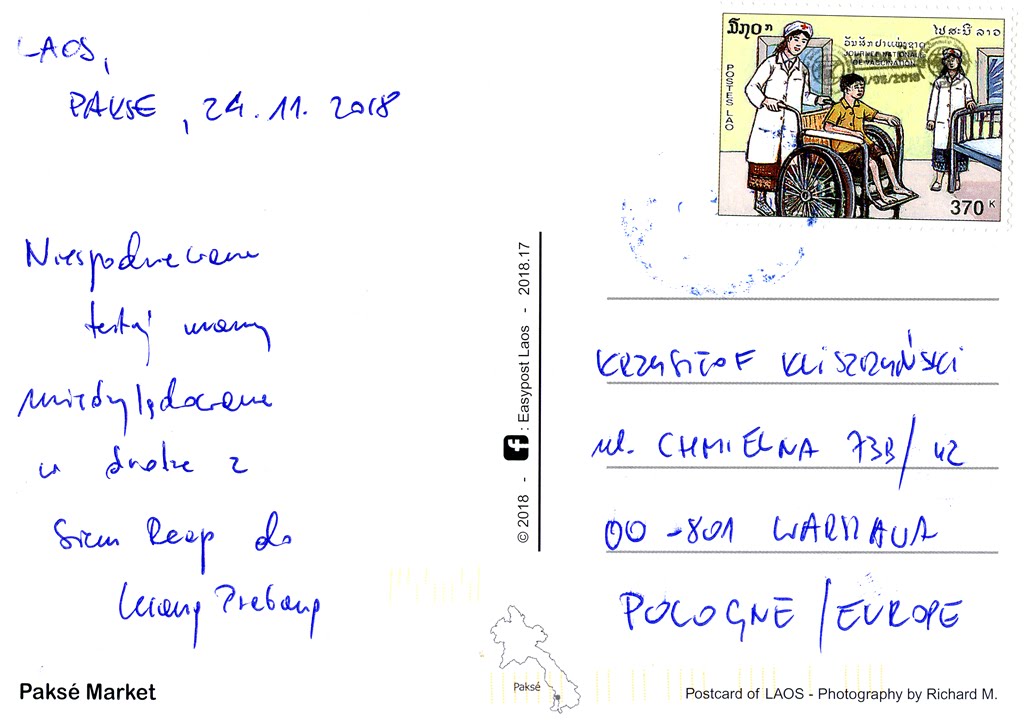 LAOS,
PAKSE, 24.11.2018
Niespodziewane
tutaj mamy
międzylądowanie
w drodze z
Siem Reap do
Luang Prabang
Paksé Market
© 2018 - : Easypost Laos - 2018.17
Paksé
ວັນສັກຢາແຫ່ງຊາດ
JOURNEE NATIONALE
DE VACCINATION
ໄປສະນີ ລາວ
POSTES LAO
370 K
KRZYSZTOF KLISZCZYŃSKI
ul. CHMIELNA 73B/42
00-801 WARSZAWA
POLOGNE / EUROPE
Postcard of LAOS - Photography by Richard M.